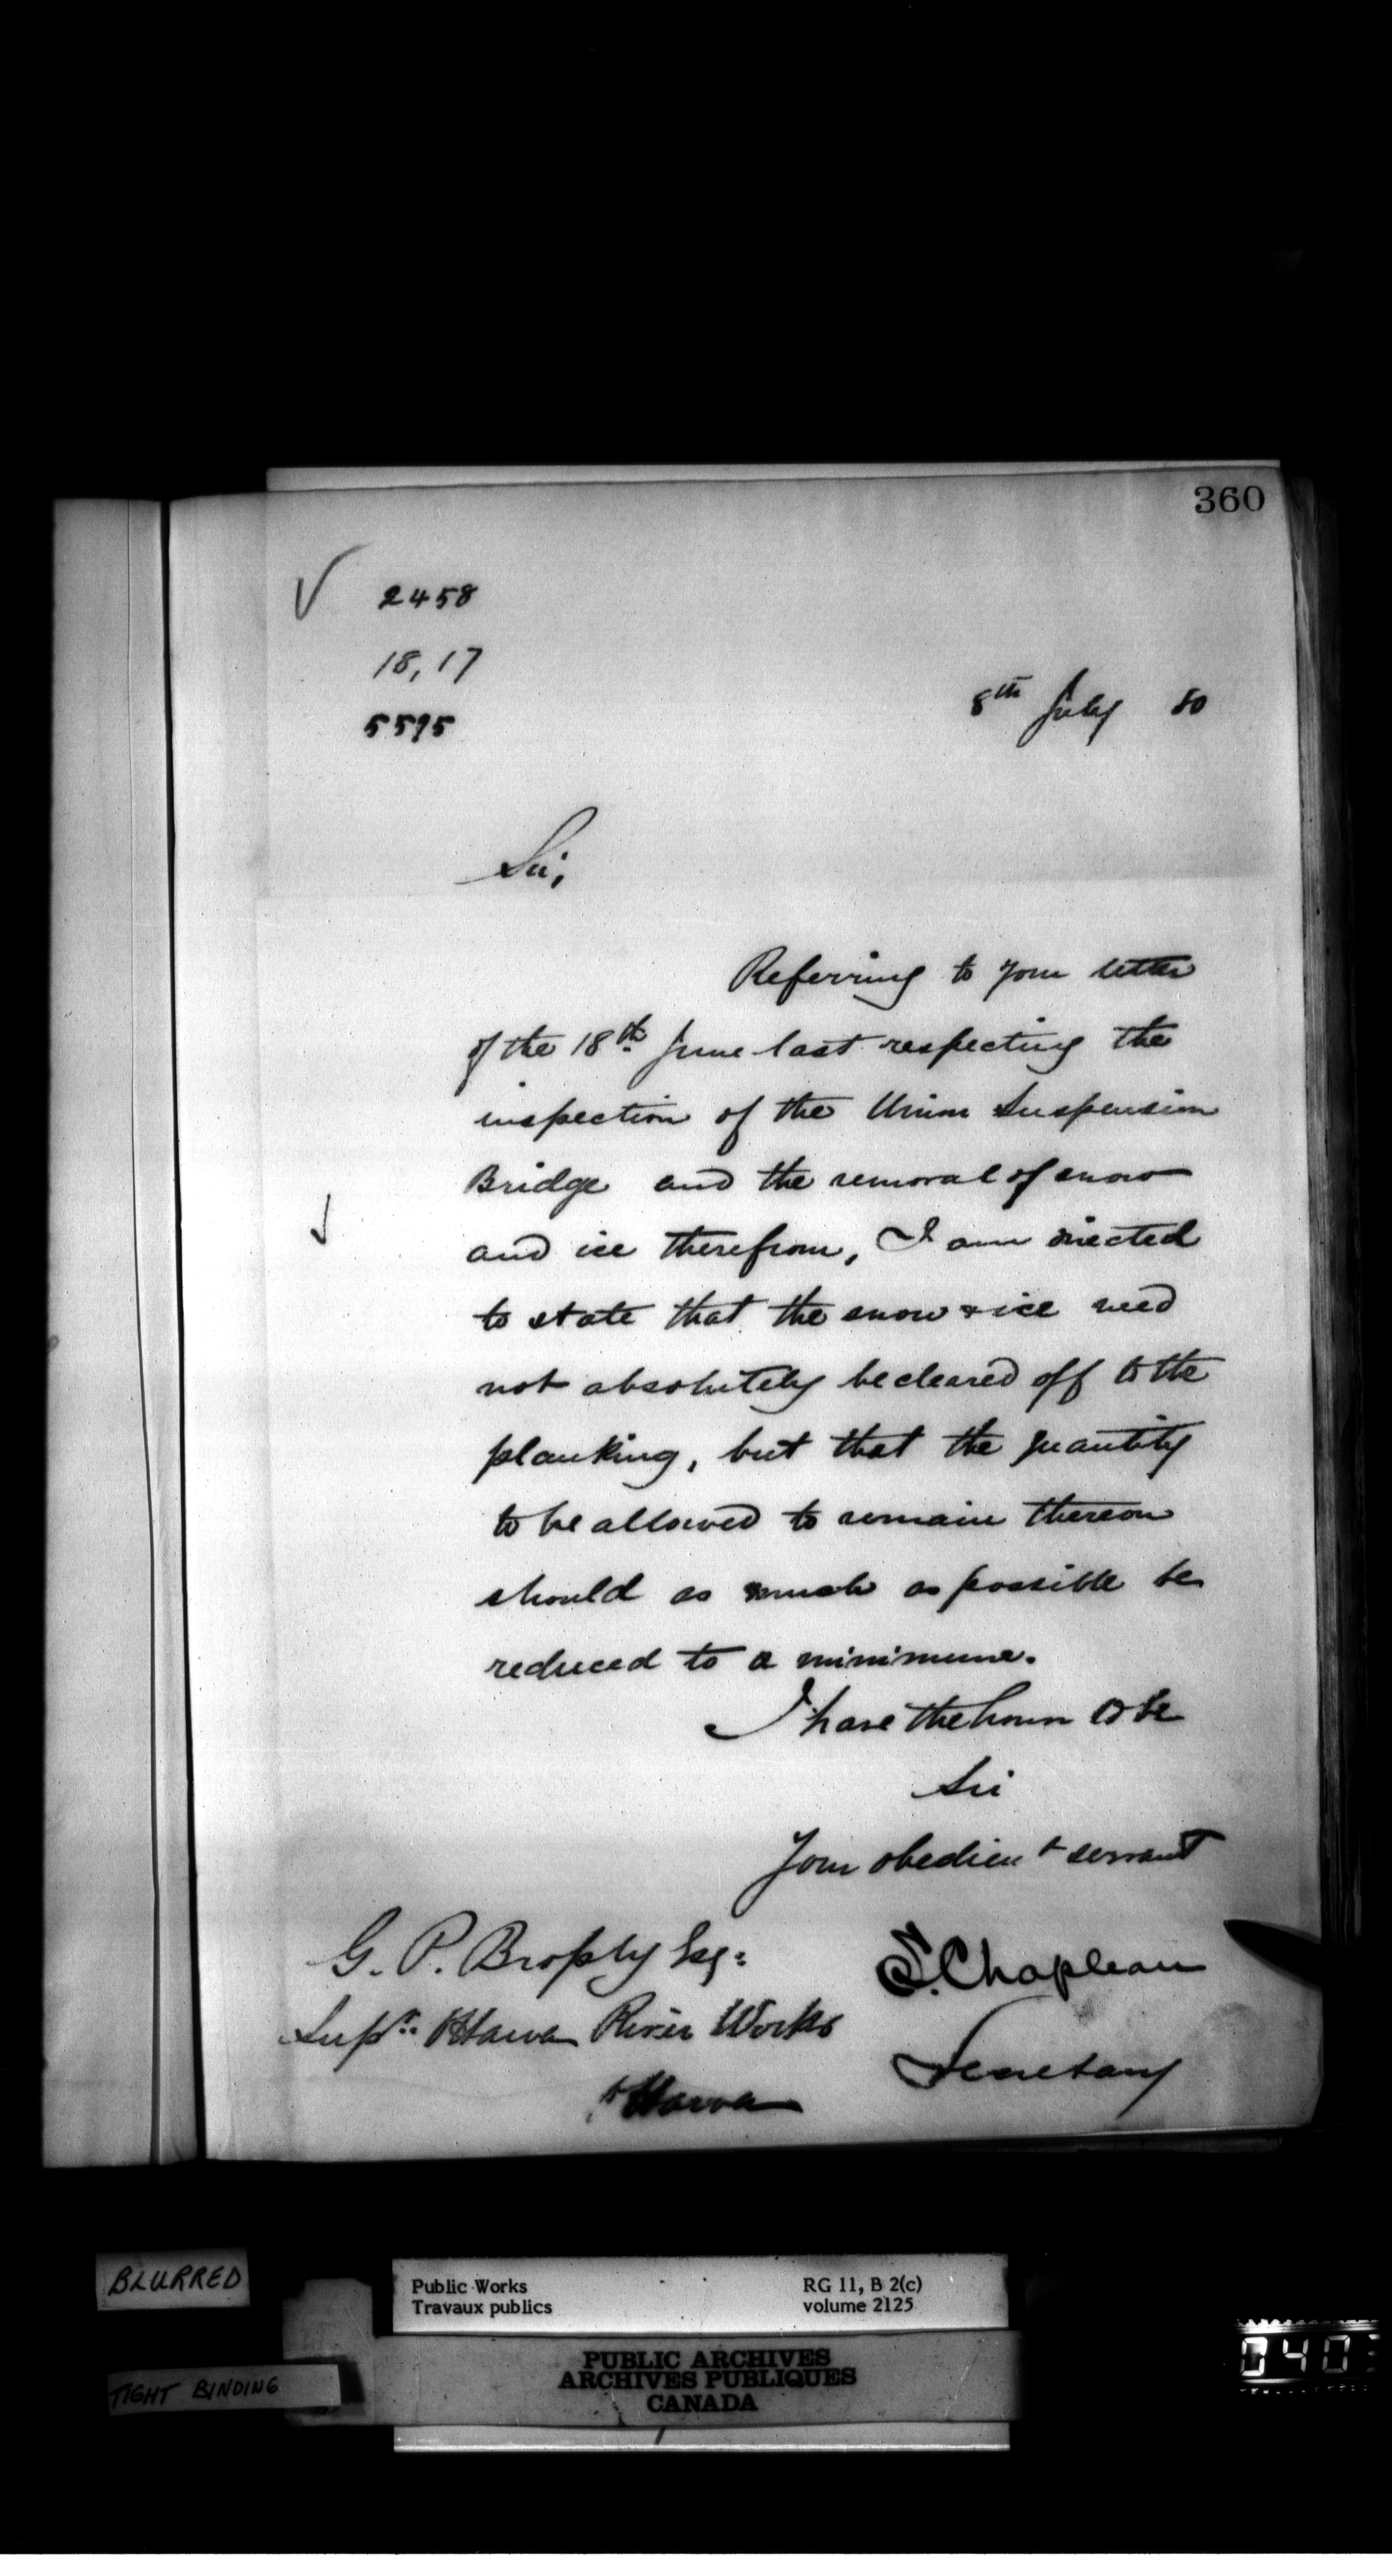 360
2458
18,17
5595
8th July 80
Sir,
Referring to your letter
of the 18th June last respecting the
inspection of the Union Suspension
Bridge and the removal of snow
and ice therefrom, I am directed
to state that the snow & ice need
not absolutely be cleared off to the
planking, but that the quantity
to be allowed to remain thereon
should as much as possible be
reduced to a minimum.
I have the honor to be
Sir
Your obedient servant
G. P. Brophy Esq:
S. Chapleau
Supt: Ottawa River Works
Secretary
Ottawa
BLURRED
Public Works
RG 11, B 2(c)
Travaux publics
volume 2125
PUBLIC ARCHIVES
ARCHIVES PUBLIQUES
CANADA
TIGHT BINDING
040